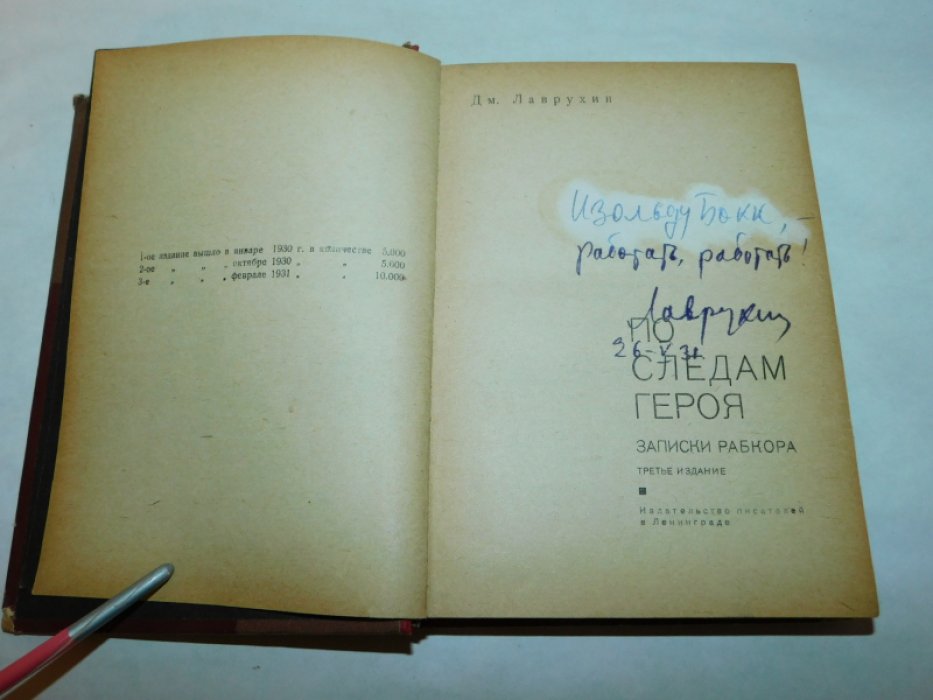 1-ое издание вышло в январе 1930 г. в количестве 5.000
2-ое „ „ „ октябре 1930 „ „ 5.000
3-е „ „ „ феврале 1931 „ „ 10.000
Дм. Лаврухин
Изольду Бокк, –
работать, работать!
Лаврухин
26-V 31
ПО
СЛЕДАМ
ГЕРОЯ
ЗАПИСКИ РАБКОРА
ТРЕТЬЕ ИЗДАНИЕ
Издательство писателей
в Ленинграде